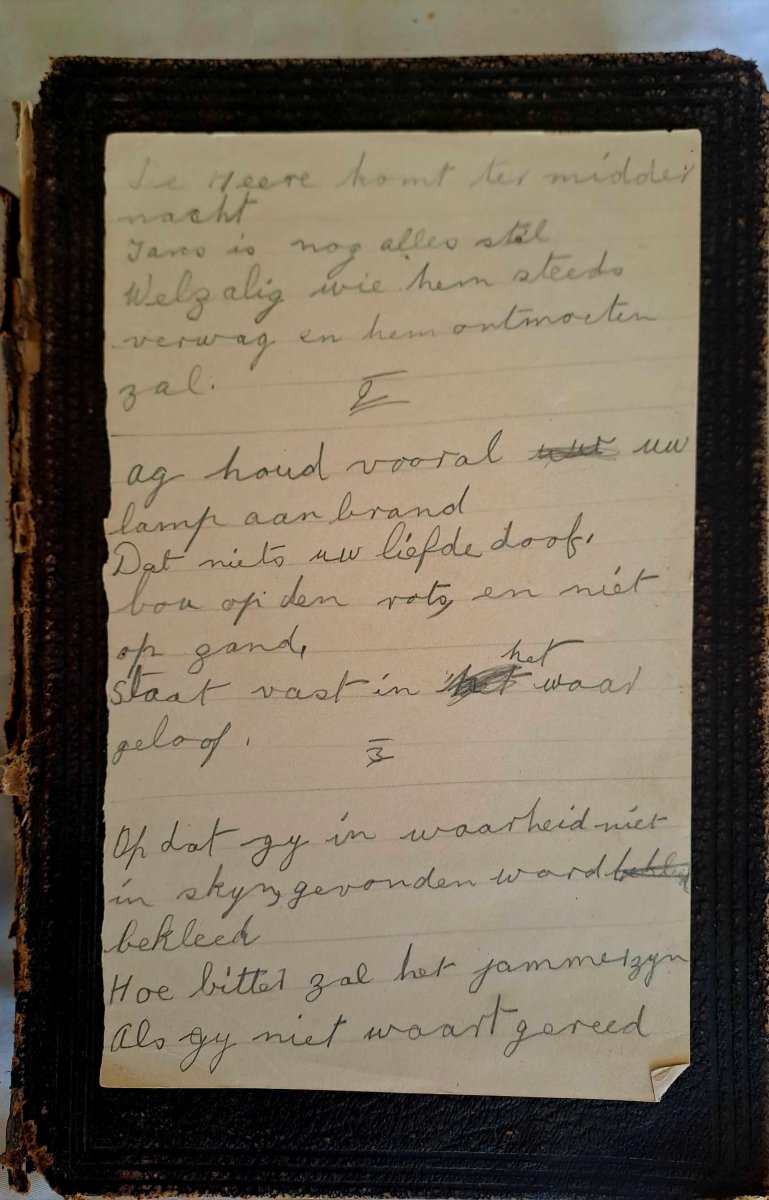 De Heere komt ter midder
nacht
is nog alles stil
Welzalig wie hem steeds
verwag en hem ontmoeten
zal.
2
Ag houd vooral uw
lamp aan brand
Dat niets uw liefde doof,
bou op den rots, en niet
op zand,
Staat vast in het waar
geloof.
3
Op dat gy in waarheid niet
in skyn, gevonden word
bekleed
Hoe bitter zal het jammer zyn
Als gy niet waart gereed